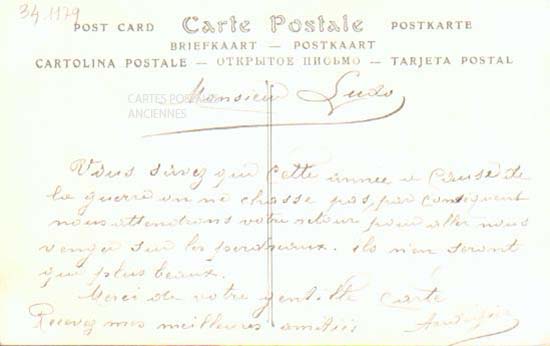 34.1179
POST CARD Carte Postale POSTKARTE
BRIEFKAART — POSTKAART
CARTOLINA POSTALE — ОТКРЫТОЕ ПИСЬМО — TARJETA POSTAL
Monsieur Ludo
CARTES POSTALES
ANCIENNES
Vous savez que cette année a cause de
la guerre on ne chasse pas, par consequent
nous attendrons votre retour pour aller nous
venger sur les perdreaux. ils n'en seront
que plus beaux.
Merci de votre gentille carte
Recevez mes meilleures amitiés